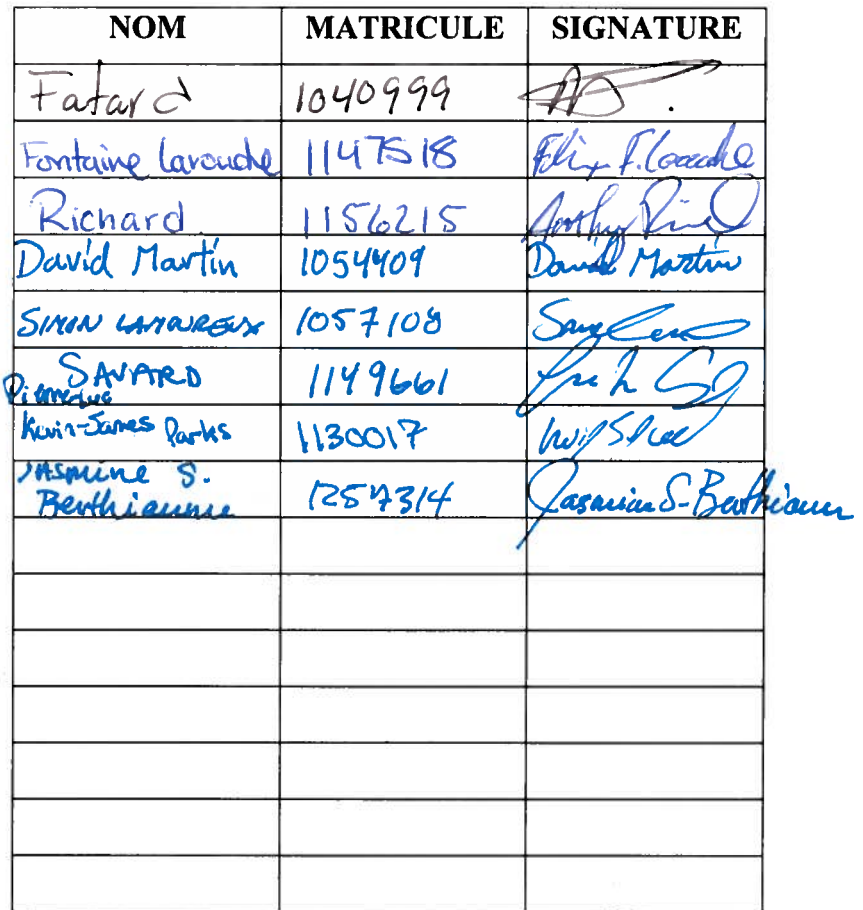 NOM MATRICULE SIGNATURE
Fatard 1040999
Fontaine Larouche 1147518 Félix F. Larouche
Richard 1156215
David Martin 1054409 David Martin
SIMON LAMOUREUX 1057108
SAVARD 1149661
Kevin-James Parks 1130017
JASMINE S. 1257314 Jasmine S-Berthiaume
Berthiaume